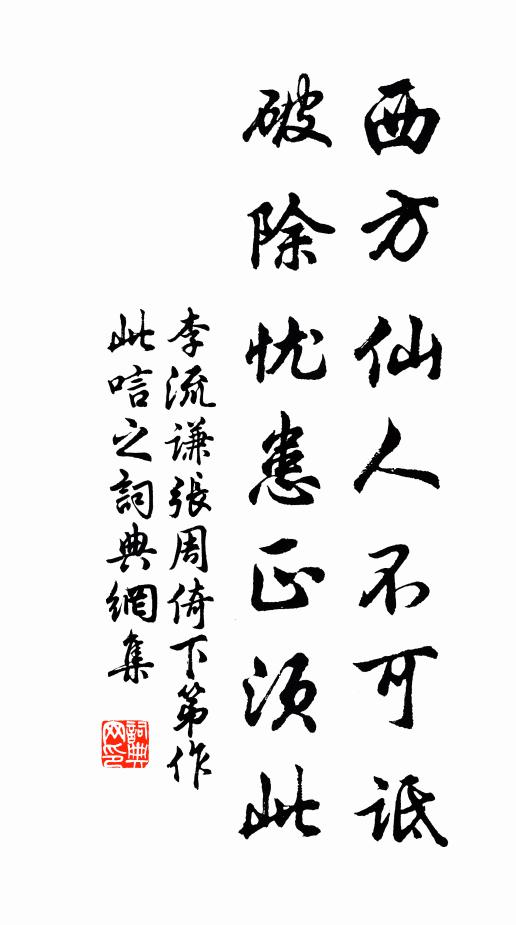 西方仙人不可诋
破除忧患正须此
李流谦张周倚下第作
此唁之詞典網集
詞典網印